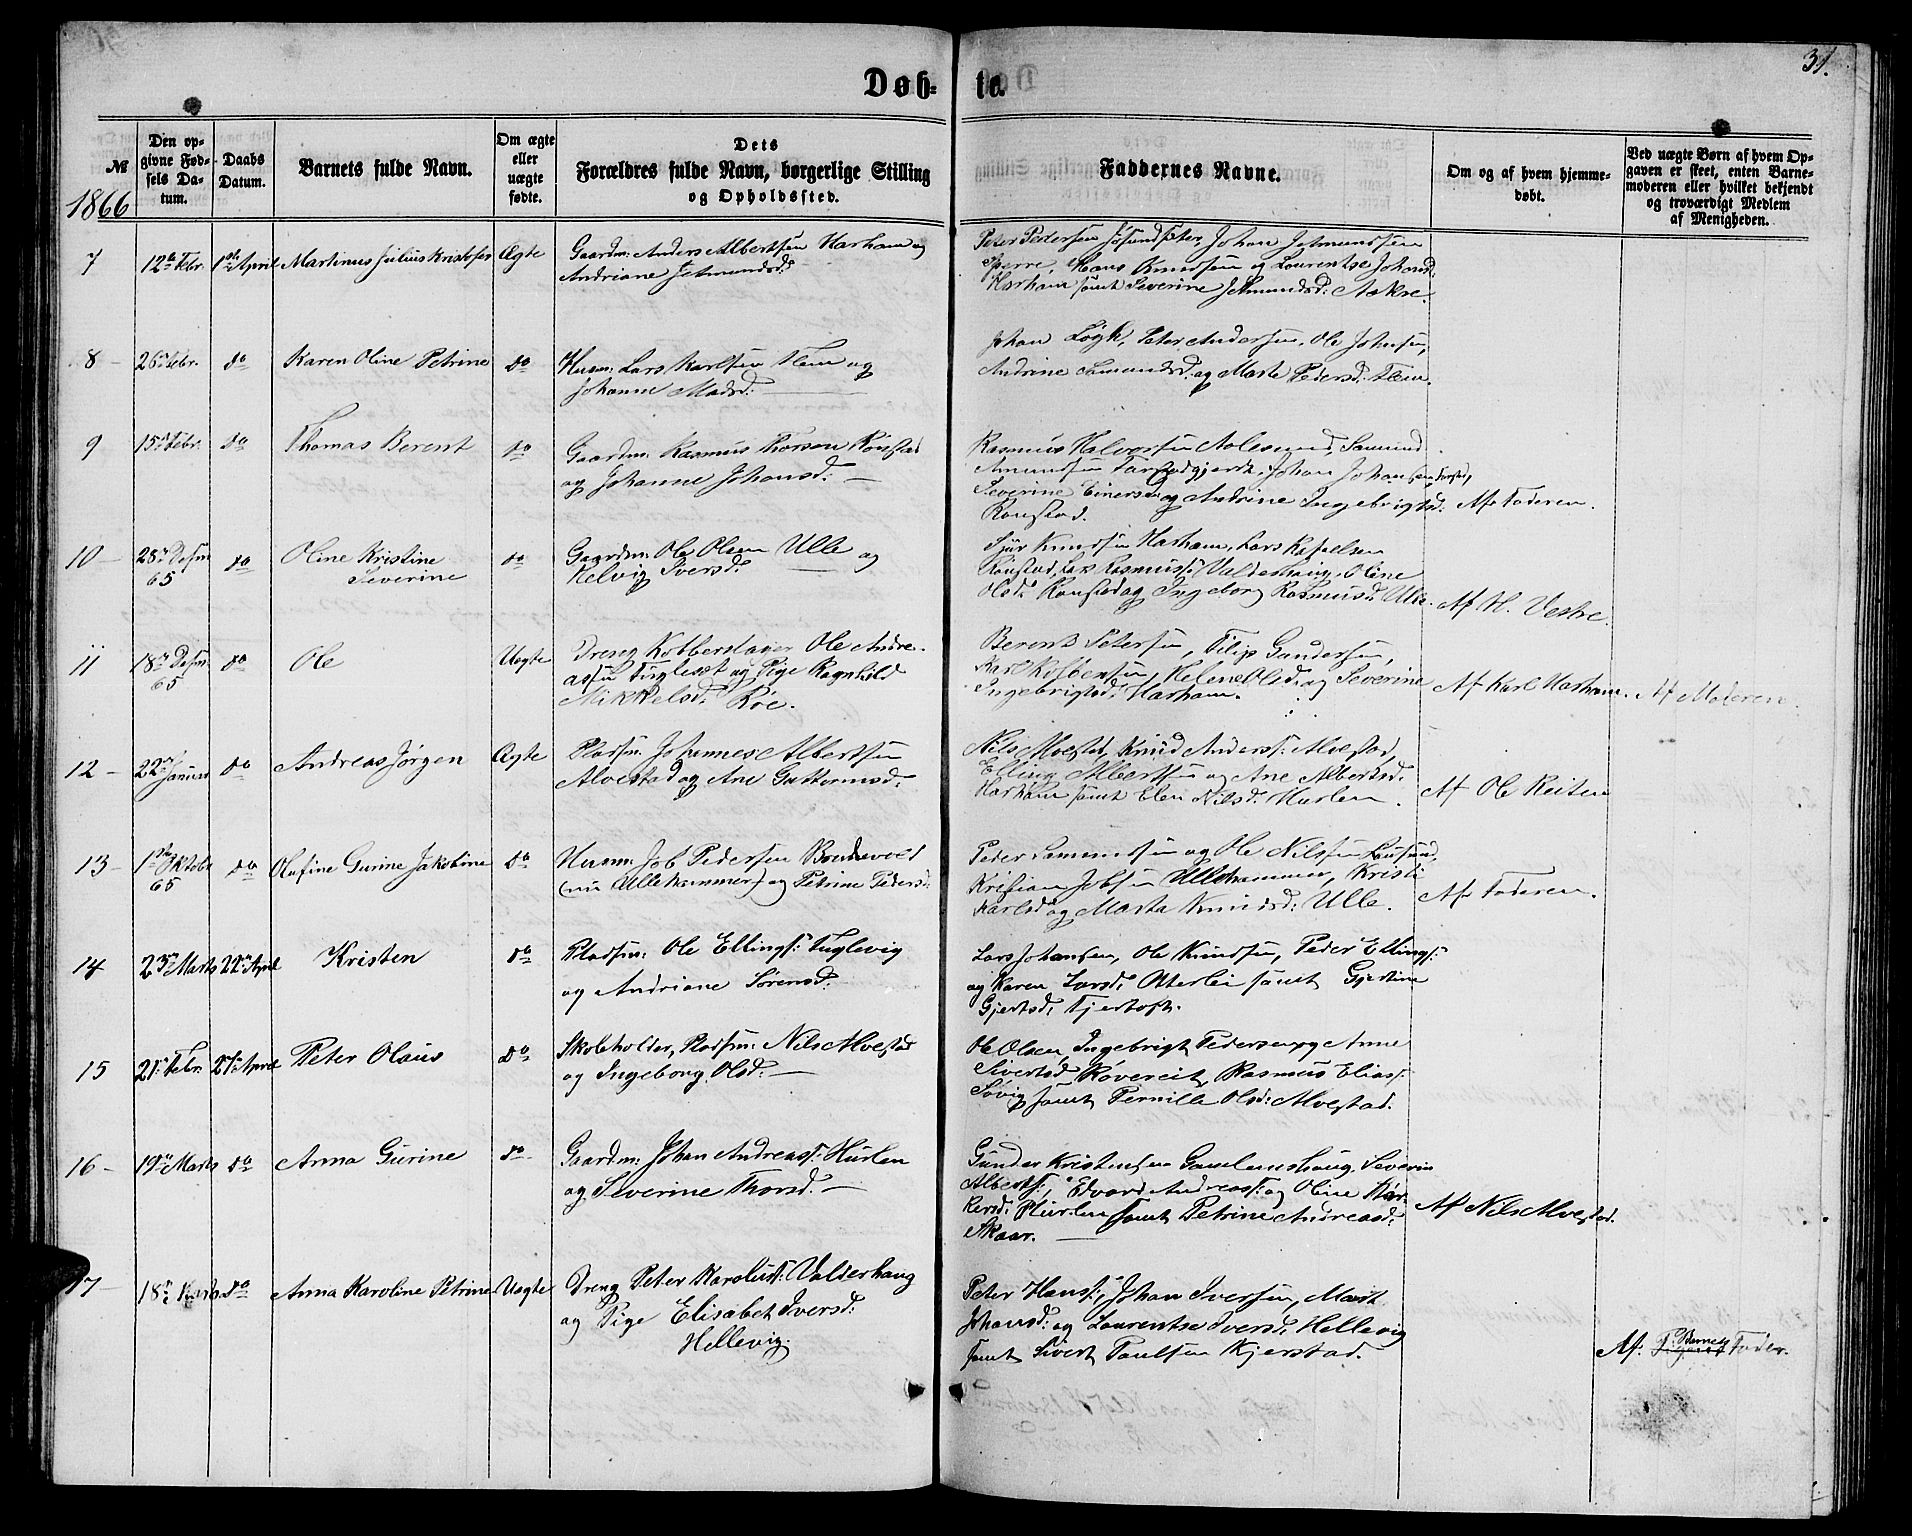 31.
Døb- te.
№
Den op-
givne Fød-
sels Da-
tum.
Daabs
Datum.
Barnets fulde Navn.
Om ægte
eller
uægte
fødte.
Dets
Forældres fulde Navn, borgerlige Stilling
og Opholdssted.
Faddernes Navne.
Om og af hvem hjemme-
døbt.
Ved uægte Børn af hvem Op-
gaven er skeet, enten Barne-
moderen eller hvilket bekjendt
og troværdigt Medlem
af Menigheden.
1866
7 12te Febr. 1ste April Martinus Julius Kristofer Ægte
Gaardm: Anders Albertsen Harham og
Andriane Jetmundsd:
Peter Pedersen Johan Jetmundsen
Hans Knudsen og Laurentse Johansd:
Harham samt Severine Jetmundsd: Aakre.
8 - 26de Febr. do Karen Oline Petrine do
Husm: Lars Karlsen Flem og
Johanne Madsd:
Johan Løgh, Peter Andersen, Ole Johnsen,
Andrine Samundsd: og Marte Pedersd: Flem.
9 15de Febr. do Thomas Berent do
Gaardm: Rasmus Thorsen Rønstad
og Johanne Johansd:
Rasmus Halvorsen Aalesund, Samund
Amundsen Johan Johansen
Severine Einersd: og Andrine Ingebrigtsd:
Rønstad.
Af Faderen.
10 - 28de Desm
65
do Oline Kristine
Severine
do
Gaardm: Ole Olsen Ulle og
Helvig Iversd:
Sjur Knudsen Harham, Lars
Rønstad, Lars Rasmuss: Valderhaug, Oline
Olsd: Rønstad og Ingeborg Rasmusd: Ulle.
Af H. Vestre.
11 18de Desm.
65
do Ole Uegte
Dreng Kobberslager Ole Andre-
assen og Pige Ragnhild
Mikkelsd: Roe.
Berent Petersen, Filip Gundersen,
Karl Helene Olsd: og Severine
Ingebrigtsd: Harham.
Af Karl Harham. Af Moderen.
12 - 22de Januar do Andreas Jørgen Ægte
Pladsm: Johannes Albertsen
Alvestad og Ane Guttormsd:
Nils Alvestad, Knud Anderss: Alvestad,
Elling Albertsen og Ane Albertsd:
Harham samt Elen Nilsd: Hurlen.
Af Ole Reiten
13 - 1ste Oktobr
65
do Olufine Gurine Jakobine do
Husm: Job Pedersen Brudevold
(nu Ullehammer) og Petrine Pedersd:
Peder Samundsen og Ole Nilsen Lausund,
Kristian Jobsen Ullehammer, Kristi
Karlsd: og Marta Knudsd: Ulle.
Af Faderen.
14 23de Marts 22de April Kristen do
Pladsm: Ole Ellings: Fuglevig
og Andriane Sørensd:
Lars Johansen, Ole Knudsen, Peder Ellings:
og Karen Larsd: Otterlei samt Gjertine
Gjertsd: Fjertoft.
15 21de Febr. 27de April Peter Olaus do
Skoleholder, Pladsm: Nils Alvestad
og Ingeborg Olsd:
Ole Olsen, Ingebrigt Pedersen og Anne
Sivertsd: Røvereit, Rasmus Elias:
Søvig samt Pernille Olsd: Alvestad.
16 - 19de Marts do Anna Gurine do
Gaardm: Johan Andreass: Hurlen
og Severine Thorsd:
Gunder Kristensen Gamlemshaug, Severin
Alberts:, Edvard Andreass: og Oline
Hurlen samt Petrine Andreasd:
Skaar.
Af Nils Alvestad.
17 - 18de Marts do Anna Karoline Petrine Uegte
Dreng Peter Karolius: Valderhaug
og Pige Elisabet Iversd:
Hellevig.
Peter Hans:, Johan Iversen, Mart
Johansd: og Laurentse Iversd: Hellevig
samt Sivert Paulsen Kjerstad.
Af Barnets Fader.